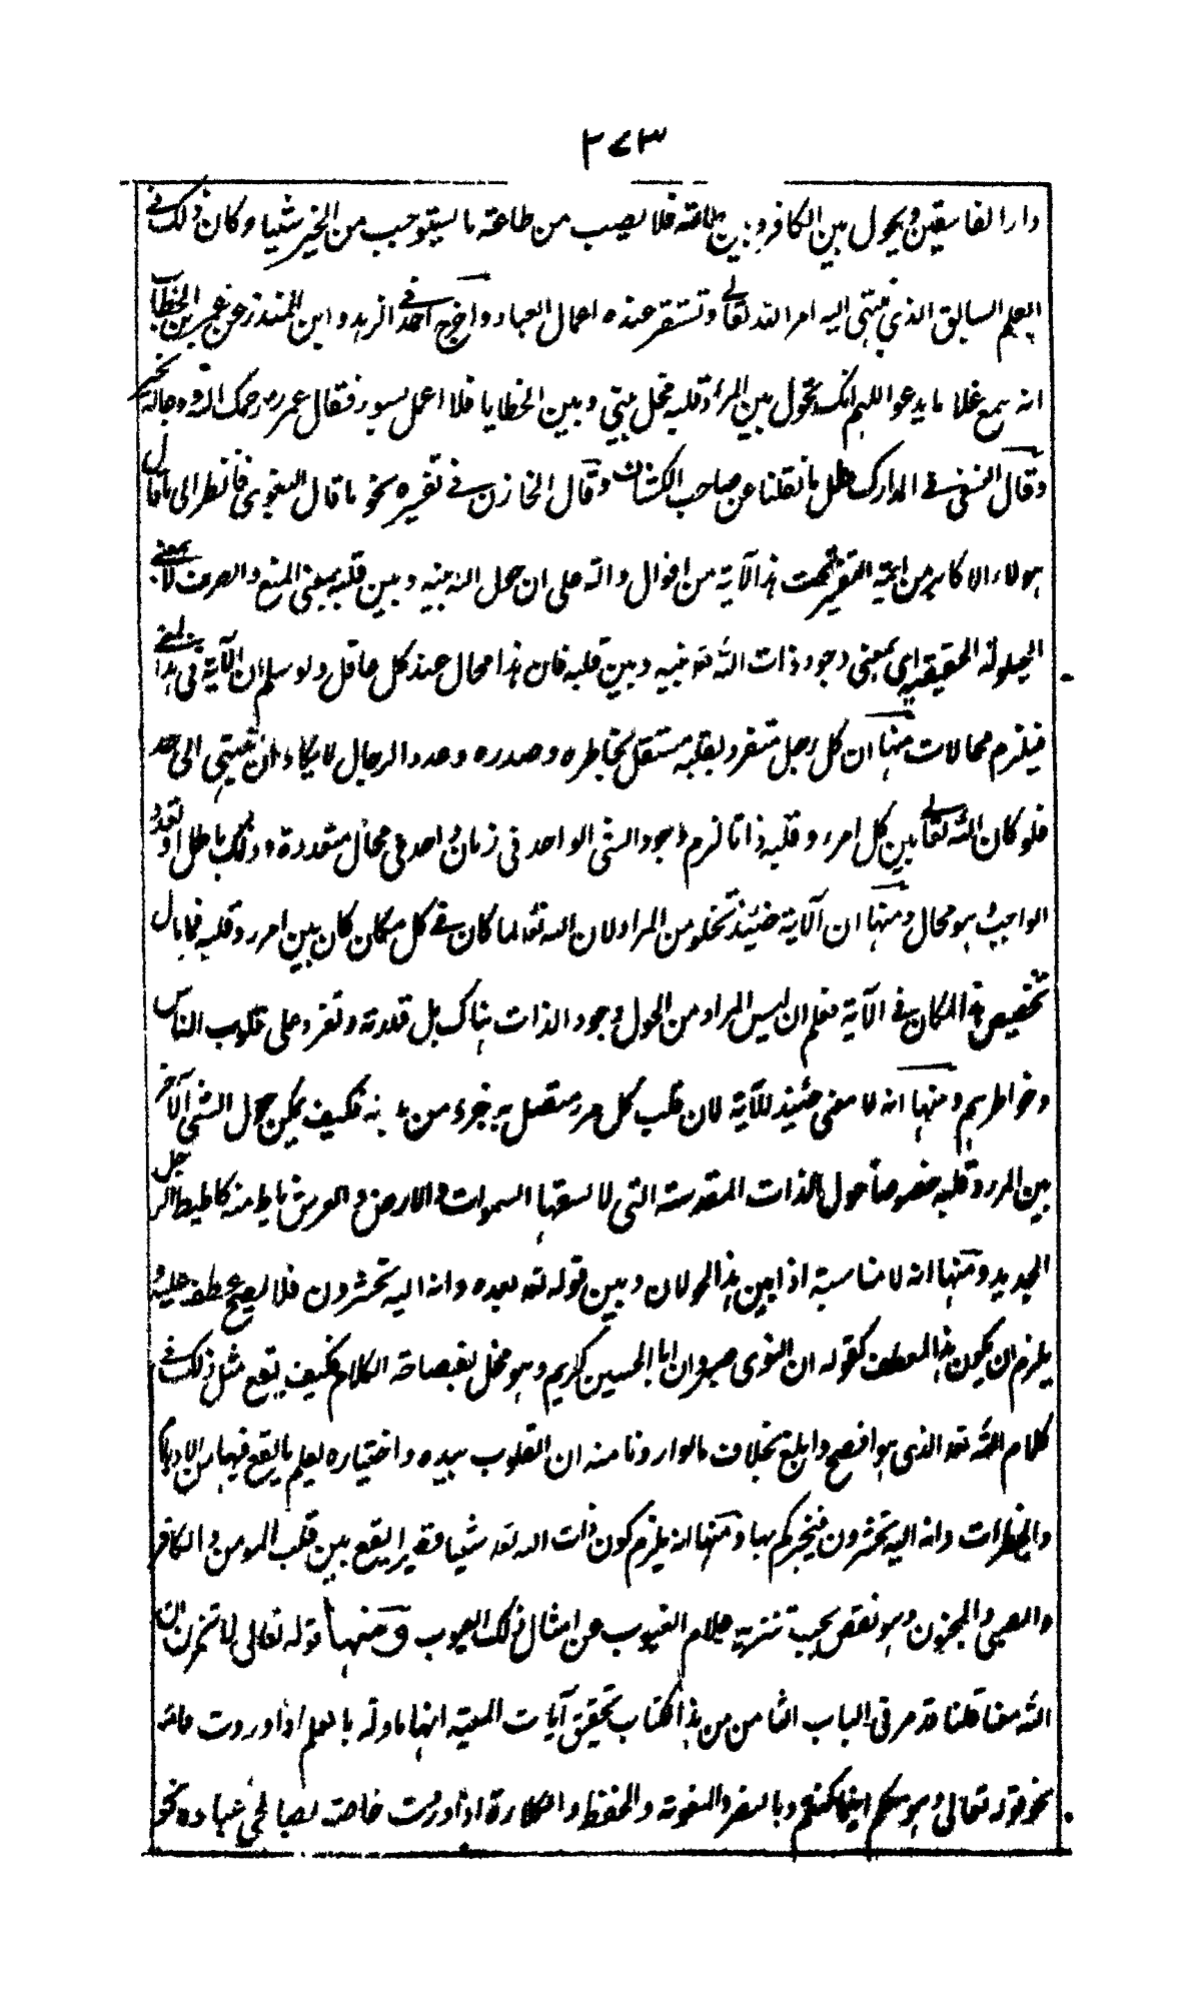 ٢٧٣
دار الفاسقين ويحول بين الكافر وبين طاعته فلا يصيب من طاعته ما يستوجب من الخير شيئا وكان ذلك في
العلم السابق الذي ينتهي اليه امر الله تعالى وتستقر عنده اعمال العباد واخرج احمد في الزهد وابن المنذر عن عمر بن الخطاب
انه سمع غلاما يدعو اللهم انك تحول بين المرء وقلبه فحل بيني وبين الخطايا فلا اعمل بسوء فقال عمر رض رحمك الله ودعا له بخير
وقال النسفي في المدارك مثل ما نقلنا عن صاحب الكشاف وقال الخازن في تفسيره نحو ما قال البغوي فانظر الى ما قال
هولاء الاكابر من ايمة التفسير تحت هذا الآية من اقوال دالة على ان حول الله بينه وبين قلبه بمعنى المنع والصرف لا بمعنى
الحيلولة الحقيقية اي بمعنى وجود ذات الله تعه بينه وبين قلبه فان هذا محال عند كل عاقل ولو سلم ان الآية في هذا المعنى
فيلزم محالات منها ان كل رجل متفرد بقلبه مستقل بخاطره وصدره وعدد الرجال لا يكاد ان ينتهي الى حد
فلو كان الله تعالى بين كل امرء وقلبه ذاتا لزم وجود الشي الواحد في زمان واحد في محال متعددة وذلك باطل او تعدد
الواجب وهو محال ومنها ان الآية حينئذ تخلو من المراد لان الله تعه لما كان في كل مكان كان بين امرء وقلبه فما بال
تخصيص هذا المكان في الآية فعلم ان ليس المراد من الحول وجود الذات هناك بل قدرته وتفرده على قلوب الناس
وخواطرهم ومنها انه لا معنى حينئذ للآية لان قلب كل مرء متصل به جزء من بدنه فكيف يمكن حول الشي الآخر
بين المرء وقلبه خصوصا حول الذات المقدسة التي لا يسعها السموات والارض والعرش يايط منه كاطيط الرحل
الجديد ومنها انه لا مناسبة اذا بين هذا الحولان وبين قوله تعه بعده وانه اليه تحشرون فلا يصح عطفه عليه و
يلزم ان يكون هذا العطف كقوله ان النوى صبر وان ابا الحسين كريم وهو مخل بفصاحة الكلام فكيف يقع مثل ذلك في
كلام الله تعه الذي هو افصح وابلغ بخلاف ما لو ارونا منه ان القلوب بيده واختياره يعلم ما يقع فيها من الاوهام
والخطرات وانه اليه تحشرون فيخبركم بها ومنها انه يلزم كون ذات الله تعه شيئا فقيرا يقع بين قلب المومن والكافر
والصبي والمجنون وهو نقص يجب تنزيه علام الغيوب عن امثال ذلك العيوب ومنها قوله تعالى لا تحزن ان
الله معنا قلنا قد مر في الباب الثامن من هذا الكتاب تحقيق آيات المعية انها ماولة بالعلم اذا وردت عامة
نحو قوله تعالى وهو معكم اينما كنتم وبالنصر والمعونة والحفظ والكلاءة اذا وردت خاصة لصالحي عباده نحو